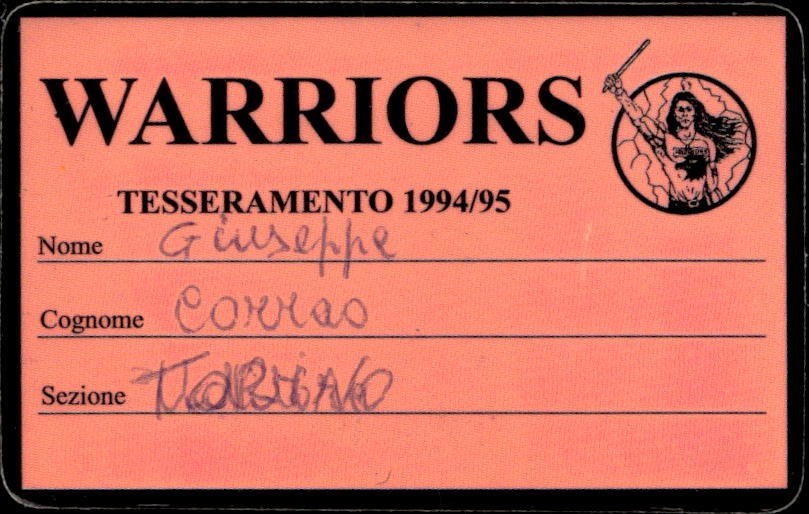 WARRIORS
TESSERAMENTO 1994/95
Nome Giuseppe
Cognome Corrao
Sezione